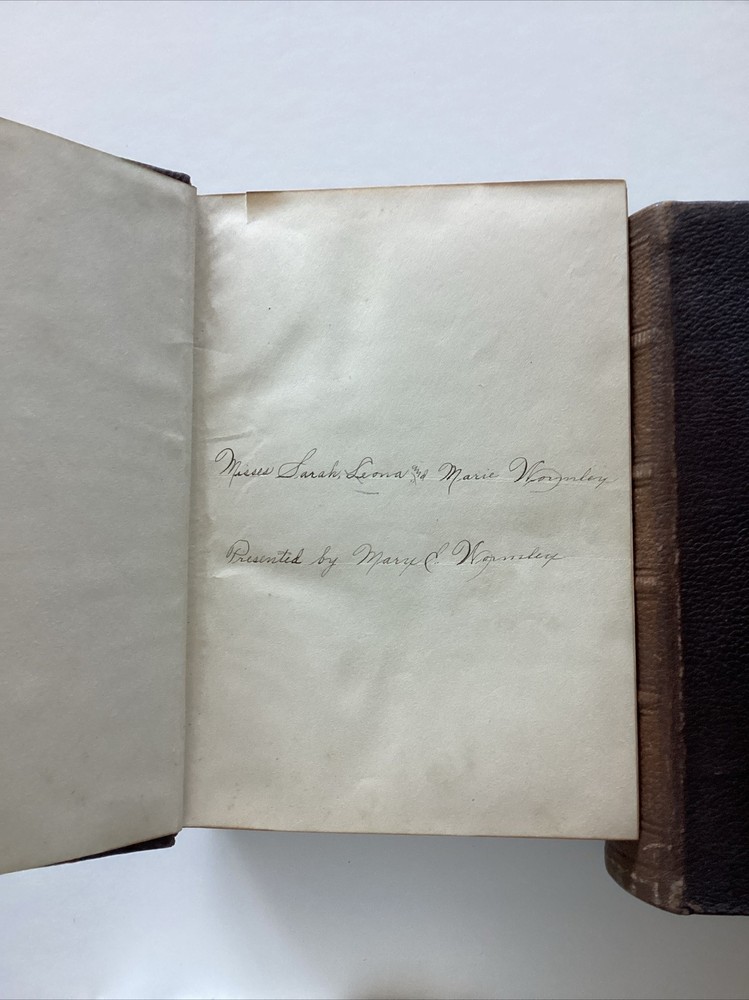 Misses Sarah, Leona and Marie Wormley
Presented by Mary E. Wormley